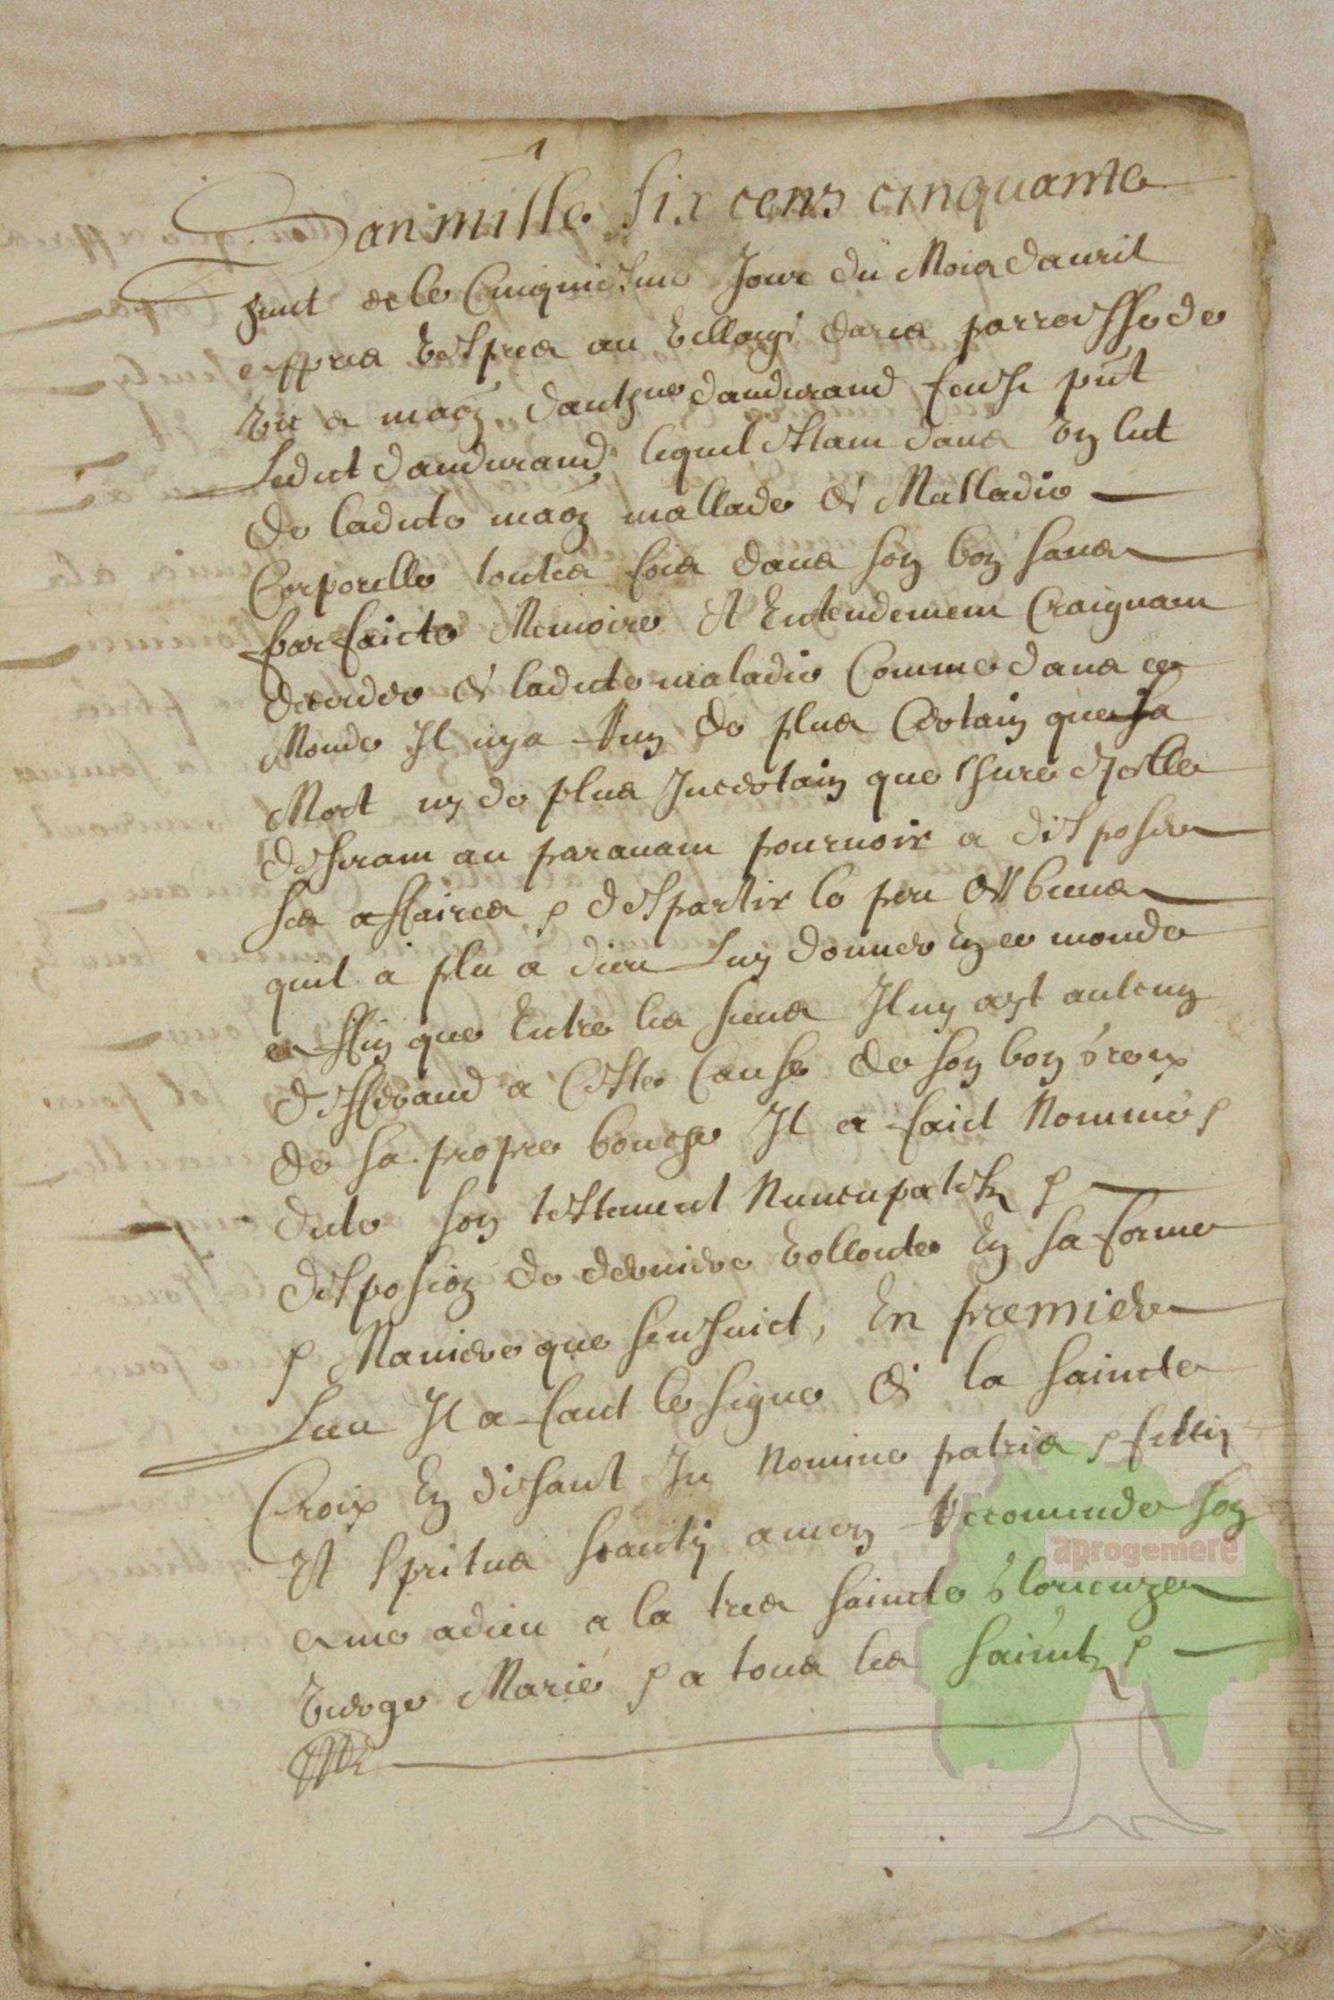 1
Lan mille six cens cinquante
huit et le Cinquiesme Jour du Mois dauril
appres Vespres au Villaige darcs parroisse de
Vic et maoz danthne dandurand feust pnt
Ledict dandurand lequel estant dans Vng lict
de ladicte maoz mallade de Malladie
Corporelle toutes fois dans son bon sans
parfaicte Memoire et Entendement Craignant
deceder de ladicte maladie Comme dans ce
Monde Il nya Rien de plus Certain que la
Mort ny de plus Incertain que lhure dycelle
desirant au parauant pournoir a disposer
ses affaires & despartir le peu de biens
quil a plu a dieu Luy donner En ce monde
affin que Entre les siens Il ny ayt aulcung
differand a Cette Cause de son bon greux
de sa propre bouche Il a faict Nommé &
dicte son testament Nuncupatifz &
disposion de derniere Vollonte En sa forme
& Maniere que sensuict, En premier
Lieu Il a faict le signe de la saincte
Croix En disant In Nomine patris & fillij
Et Spritus santij amen Recomende son
ame a dieu a la tres saincte Glorieuze
Vierge Marie & a tous les saintz &
aprogemere